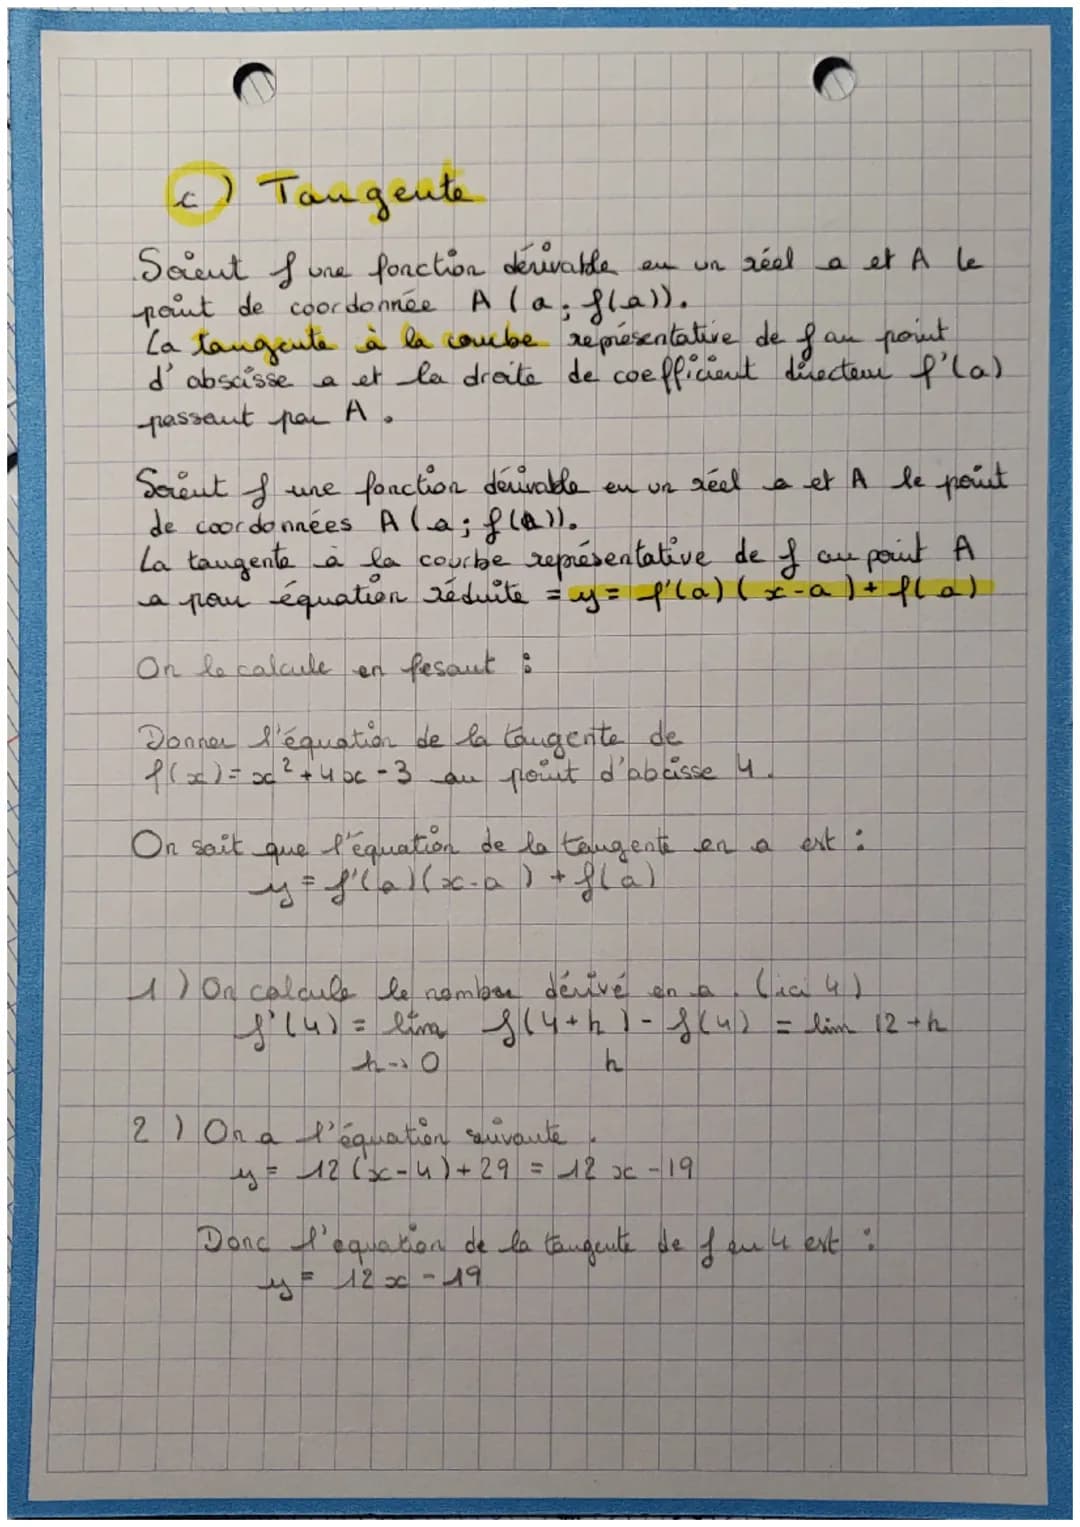 c) Tangente
Soient f une fonction dérivable en un réel a et A le
point de coordonnée A (a ; f(a)).
La tangente à la courbe représentative de f au point
d'abscisse a et la droite de coefficient directeur f'(a)
passant par A.
Soient f une fonction dérivable en un réel a et A le point
de coordonnées A (a ; f(a)).
La tangente à la courbe représentative de f au point A
a pour équation réduite = y = f'(a) (x-a) + f(a)
On le calcule en fesant :
Donner l'équation de la tangente de
f(x) = x² + 4x - 3 au point d'abcisse 4.
On sait que l'équation de la tangente en a est :
y = f'(a)(x-a) + f(a)
1) On calcule le nombre dérivé en a. (ici 4)
f'(4) = lim f(4+h) - f(4) = lim 12 + h
h→0 h
2) On a l'équation suivante.
y = 12(x-4) + 29 = 12x - 19
Donc l'équation de la tangente de f en 4 est :
y = 12x - 19